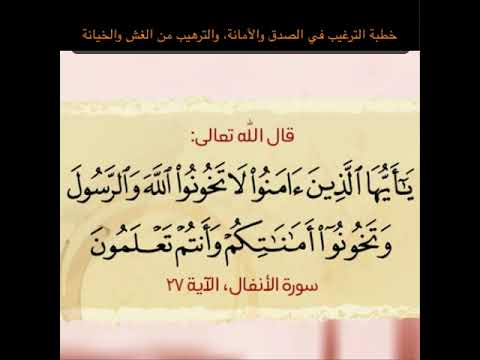 خطبة الترغيب في الصدق والأمانة، والترهيب من الغش والخيانة
قال الله تعالى:
يَٰٓأَيُّهَا ٱلَّذِينَ ءَامَنُوا۟ لَا تَخُونُوا۟ ٱللَّهَ وَٱلرَّسُولَ
وَتَخُونُوٓا۟ أَمَٰنَٰتِكُمْ وَأَنتُمْ تَعْلَمُونَ
سورة الأنفال، الآية ٢٧